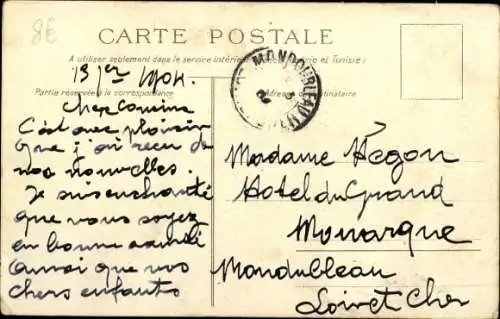 8€
CARTE POSTALE
A utiliser seulement dans le service intérieur et Tunisie!
Partie réservée à la correspondance
Adresse du destinataire
MONDOUBLEAU
13 1904.
Cher Cousine
C'est avec plaisir
que j'ai reçu de
vos nouvelles.
Je suis enchanté
que vous soyez
en bonne santé
ainsi que vos
chers enfants
Madame Hegon
Hotel du Grand
Monarque
Mondubleau
Loir et Cher